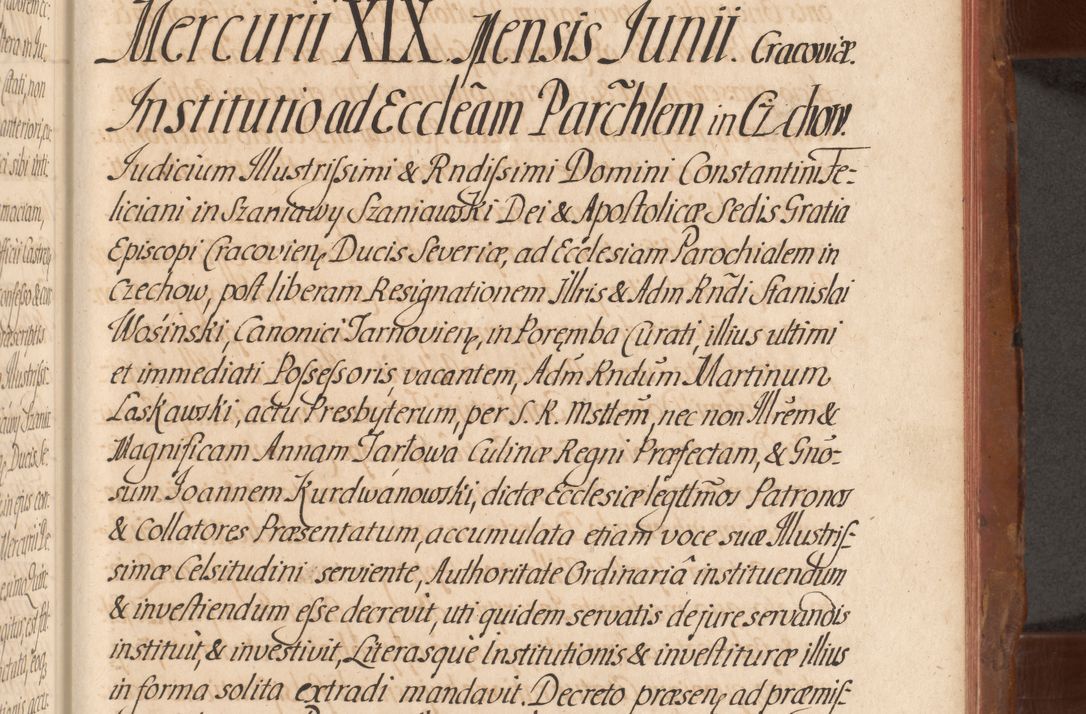 Mercurii XIX. Mensis Junii. Cracoviæ.
Institutio ad Ecclẽam Parc̃hlem in Czchow.
Judicium Illustrissimi & Rndissimi Domini Constantini Fe-
liciani in Szaniawy Szaniawski Dei & Apostolicæ Sedis Gratia
Episcopi Cracovien, Ducis Severiæ, ad Ecclesiam Parochialem in
Czechow, post liberam Resignationem Illris & Adm Rñdi Stanislai
Wośinski, Canonici Tarnovien, in Poremba Curati, illius ultimi
et immediati Possessoris, vacantem, Adm̃ Rndum̃ Martinum
Laskawski, actu Presbyterum, per S. R. Msttem̃, nec non Illrẽm &
Magnificam Annam Tarłowa Culinæ Regni Præfectam, & Gnõ-
sum Joannem Kurdwanowski, dictæ Ecclesiæ legttm̃os Patronos
& Collatores Præsentatum, accumulata etiam voce suæ Illustris-
simæ Celsitudini serviente, Authoritate Ordinariâ instituendum
& investiendum esse decrevit, uti quidem servatis de jure servandis
instituit, & investivit, Literasque Institutionis & investituræ illius
in forma solita extradi mandavit. Decreto præsen ad præmis-